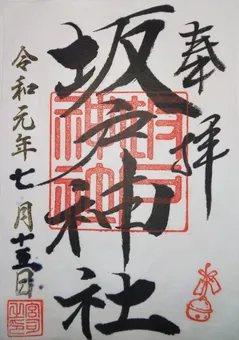 奉拝
坂戸神社
令和元年七月十五日